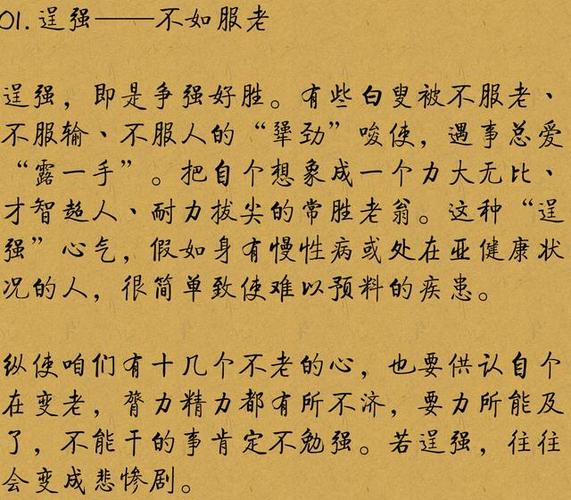 01.逞强——不如服老
逞强，即是争强好胜。有些白叟被不服老、
不服输、不服人的“犟劲”唆使，遇事总爱
“露一手”。把自个想象成一个力大无比、
才智超人、耐力拔尖的常胜老翁。这种“逞
强”心气，假如身有慢性病或处在亚健康状
况的人，很简单致使难以预料的疾患。
纵使咱们有十几个不老的心，也要供认自个
在变老，膂力精力都有所不济，要力所能及
了，不能干的事肯定不勉强。若逞强，往往
会变成悲惨剧。